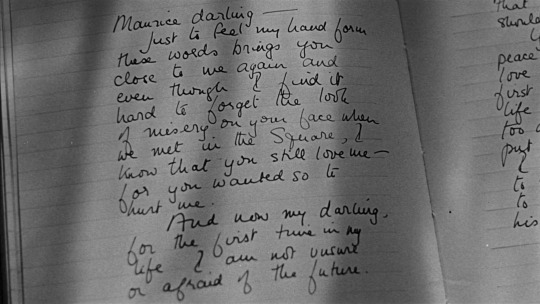 Maurice darling —
Just to feel my hand form
these words brings you
close to me again and
even though I find it
hard to forget the look
of misery on your face when
we met in the Square, I
know that you still love me —
for you wanted so to
hurt me.
And now my darling,
for the first time in my
life I am not unsure
or afraid of the future.
that
should
peace
love
first
life
too
put
I
to
to
his